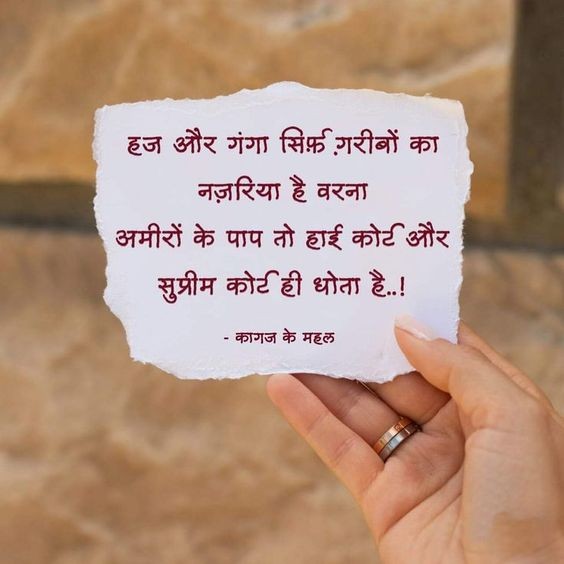 हज और गंगा सिर्फ़ ग़रीबों का
नज़रिया है वरना
अमीरों के पाप तो हाई कोर्ट और
सुप्रीम कोर्ट ही धोता है..!
- कागज के महल